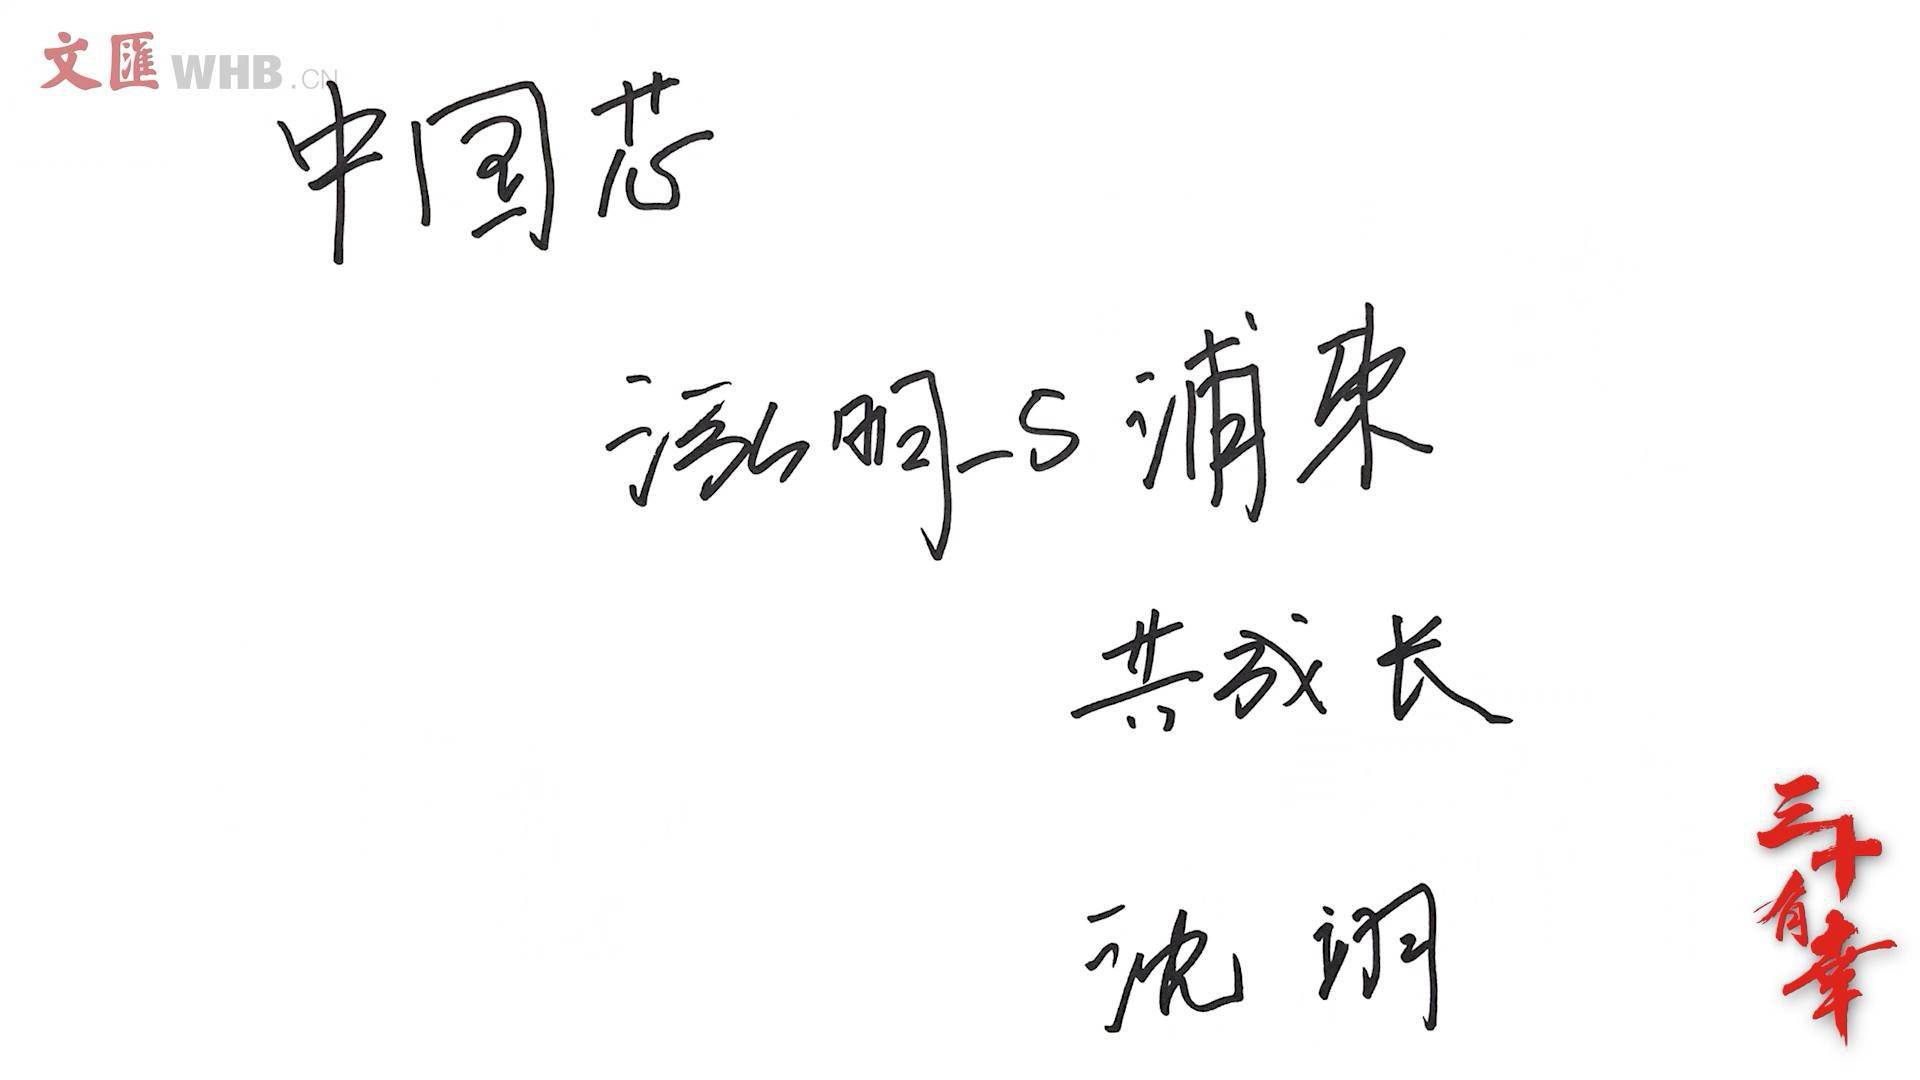 文匯 WHB.CN
中国芯
泓明与浦东
共成长
沈翊
三十有幸